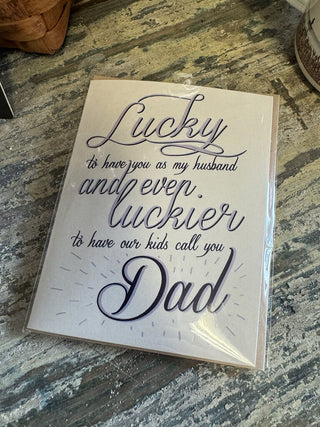 Lucky
to have you as my husband
and even
luckier
to have our kids call you
Dad